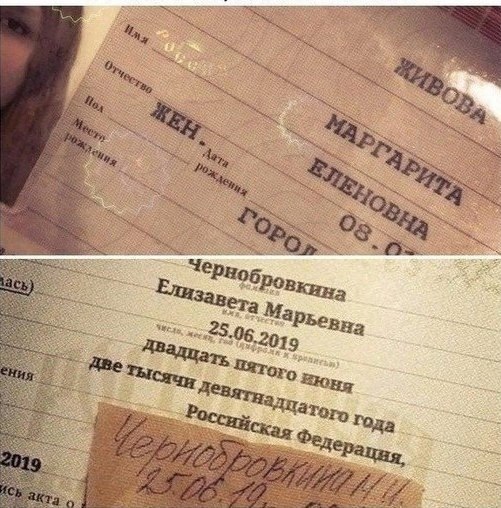 ЖИВОВА
Имя
МАРГАРИТА
Отчество
ЕЛЕНОВНА
Пол
ЖЕН.
Дата
рождения
08.0
Место
рождения
ГОРОД
Чернобровкина
фамилия
лась)
Елизавета Марьевна
имя, отчество
25.06.2019
число, месяц, год (цифрами и прописью)
двадцать пятого июня
две тысячи девятнадцатого года
ения
Российская Федерация,
2019
Чернобровкина М.И.
25.06.19
ись акта о